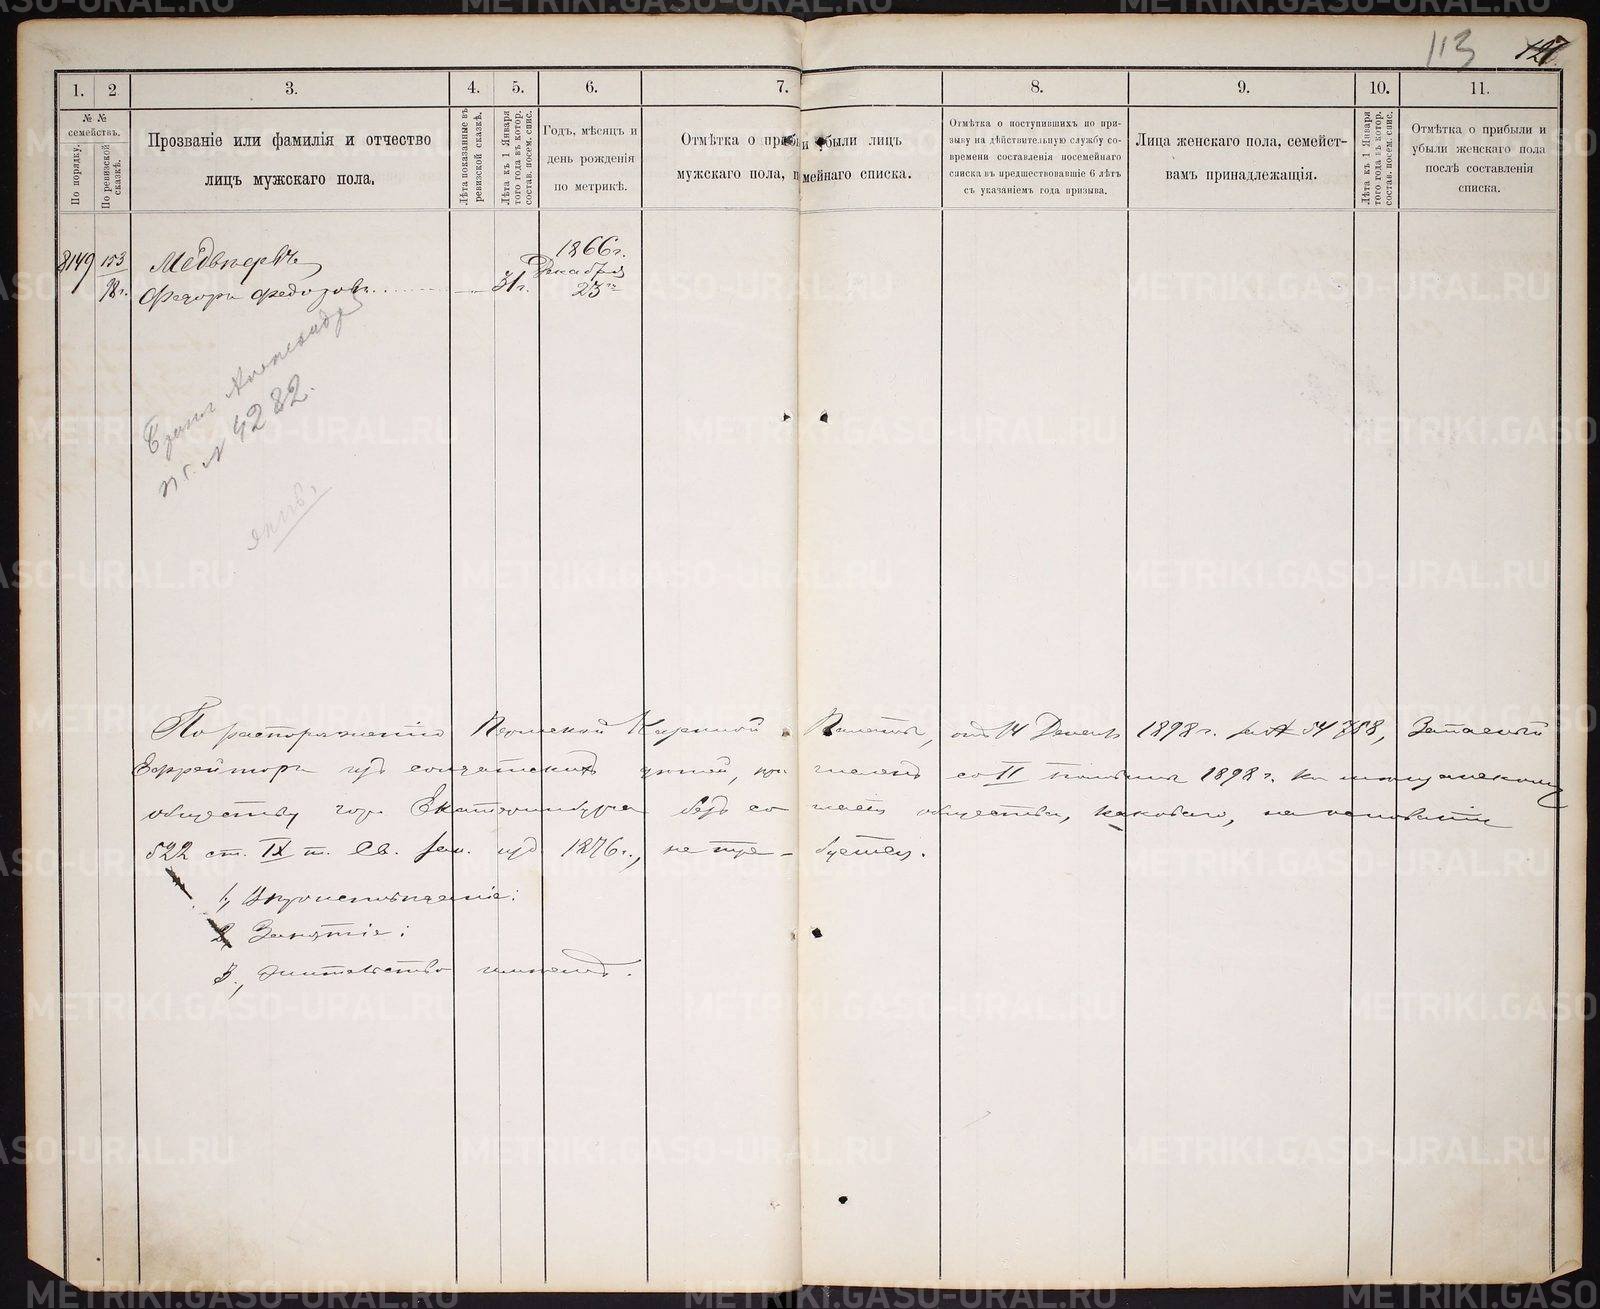 113 127
1. 2. 3. 4. 5. 6. 7. 8. 9. 10. 11.
№ № семействъ.
По порядку.
По ревизской сказкѣ.
Прозваніе или фамилія и отчество
лицъ мужскаго пола.
Лѣта показанные въ ревизской сказкѣ.
Лѣта къ 1 Января того года въ котор. состав. посем. спис.
Годъ, мѣсяцъ и
день рожденія
по метрикѣ.
Отмѣтка о приб и убыли лицъ
мужскаго пола, п мейнаго списка.
Отмѣтка о поступившихъ по при-
зыву на дѣйствительную службу со-
времени составленія посемейнаго
списка въ предшествовавшіе 6 лѣтъ
съ указаніемъ года призыва.
Лица женскаго пола, семейст-
вамъ принадлежащія.
Лѣта къ 1 Января того года въ котор. состав. посем. спис.
Отмѣтка о прибыли и
убыли женскаго пола
послѣ составленія
списка.
8149 153 98 г.
Федоръ Федо
31 г.
1866 г.
Декабря
23
№ 4282.
По распоряженію Пермской Казенной Палаты, отъ 14 Декаб 1898 г. за № 54788, Запасный
Ефрейторъ изъ солдатскихъ дѣтей, при численъ со II половины 1898 г. къ мѣщанскому
обществу гор. Екатеринбурга безъ со гласія общества, каковаго, на основаніи
522 ст. IX т. Св. Зак. изд. 1876 г., не тре- буется.
1, Вѣроисповѣданіе:
2, Занятіе:
3., Жительство имѣетъ.
METRIKI.GASO-URAL.RU